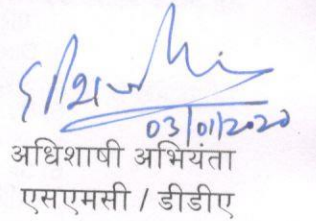 03/01/2020
अधिशाषी अभियंता
एसएमसी / डीडीए